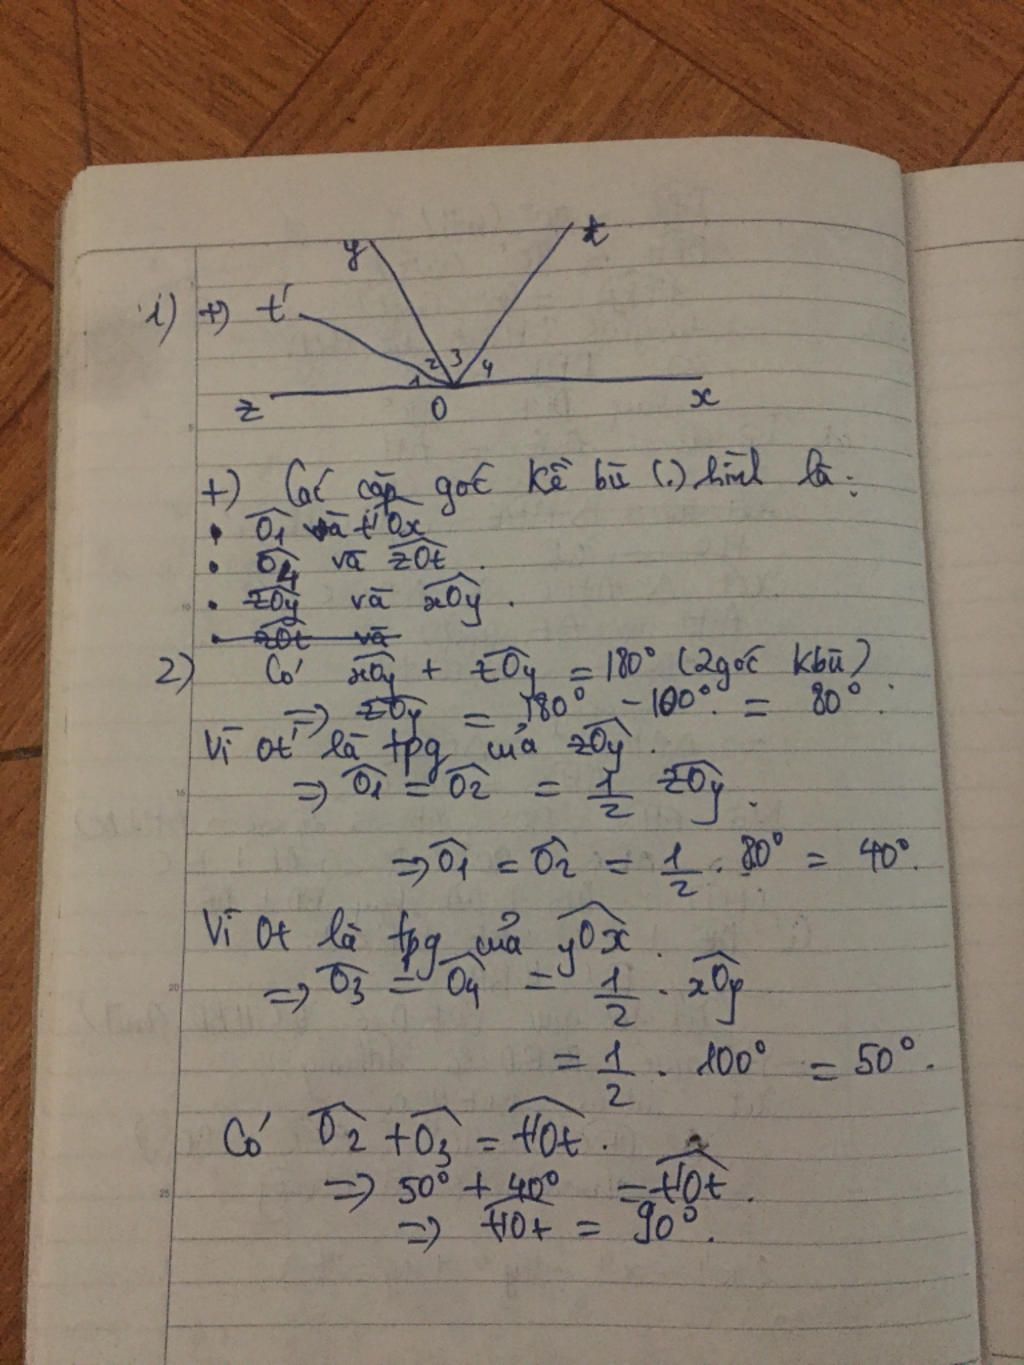 y t
1) +) t'
2 3
1 4
z O x
+) Các cặp góc kề bù (.) hình là:
• Ô1 và t'Ox
• Ô4 và zOt.
• zOy và xOy.
• zOt và
2) Có xOy + zOy = 180° (2góc kbù)
=> zOy = 180° - 100° = 80°.
Vì Ot' là tpg của zOy.
=> Ô1 = Ô2 = 1/2 zOy.
=> Ô1 = Ô2 = 1/2 . 80° = 40°.
Vì Ot là tpg của yOx.
=> Ô3 = Ô4 = 1/2 . xOy
= 1/2 . 100° = 50°.
Có Ô2 + Ô3 = t'Ot.
=> 50° + 40° = t'Ot.
=> t'Ot = 90°.